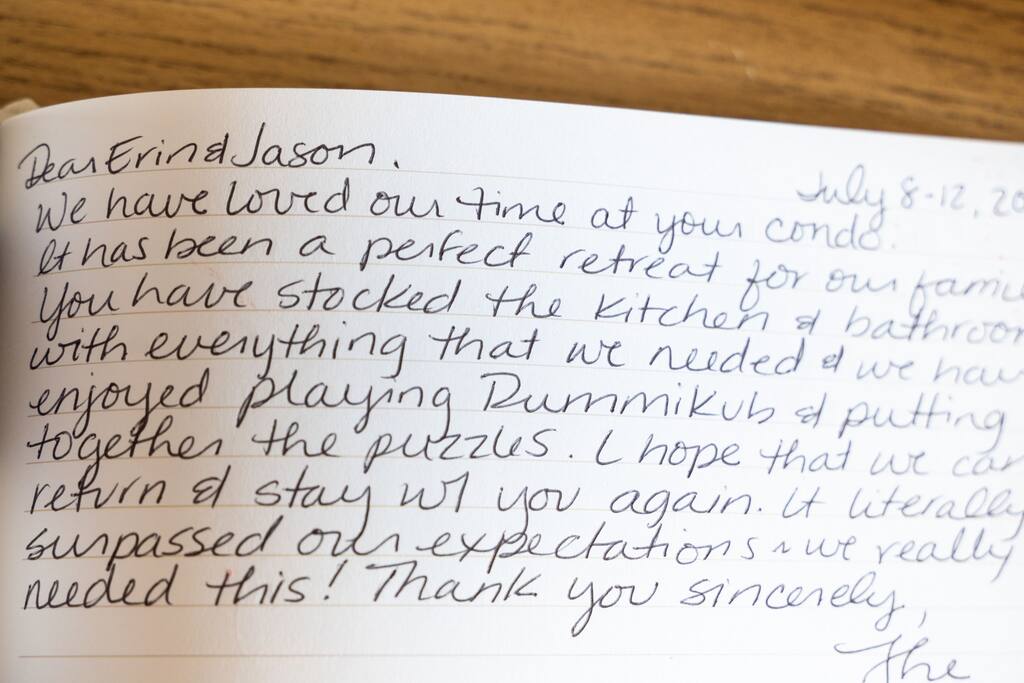 Dear Erin & Jason.
July 8-12, 20
We have loved our time at your condo.
It has been a perfect retreat for our fami
You have stocked the kitchen & bathroom
with everything that we needed & we hav
enjoyed playing Rummikub & putting
together the puzzles. I hope that we can
return & stay w/ you again. It literally
surpassed our expectations ~ we really
needed this! Thank you sincerely,
The